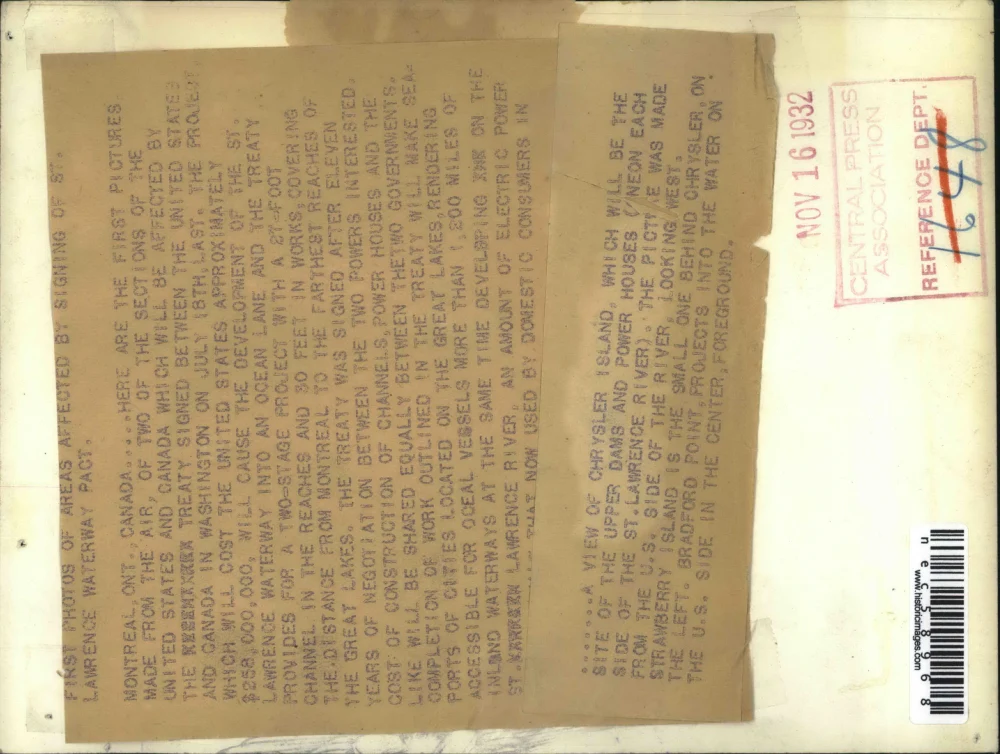 FIRST PHOTOS OF AREAS AFFECTED BY SIGNING OF ST.
LAWRENCE WATERWAY PACT.
MONTREAL, ONT., CANADA.....HERE ARE THE FIRST PICTURES
MADE FROM THE AIR, OF TWO OF THE SECTIONS OF THE
UNITED STATES AND CANADA WHICH WILL BE AFFECTED BY
THE TREATY SIGNED BETWEEN THE UNITED STATES
AND CANADA IN WASHINGTON ON JULY 18TH, LAST. THE PROJECT
WHICH WILL COST THE UNITED STATES APPROXIMATELY
$258,000,000, WILL CAUSE THE DEVELOPMENT OF THE ST.
LAWRENCE WATERWAY INTO AN OCEAN LANE AND THE TREATY
PROVIDES FOR A TWO-STAGE PROJECT WITH A 27-FOOT
CHANNEL IN THE REACHES AND 30 FEET IN WORKS, COVERING
THE DISTANCE FROM MONTREAL TO THE FARTHEST REACHES OF
THE GREAT LAKES. THE TREATY WAS SIGNED AFTER ELEVEN
YEARS OF NEGOTIATION BETWEEN THE TWO POWERS INTERESTED.
COST OF CONSTRUCTION OF CHANNELS, POWER HOUSES AND THE
LIKE WILL BE SHARED EQUALLY BETWEEN THETWO GOVERNMENTS.
COMPLETION OF WORK OUTLINED IN THE TREATY WILL MAKE SEA-
PORTS OF CITIES LOCATED ON THE GREAT LAKES, RENDERING
ACCESSIBLE FOR OCEAL VESSELS MORE THAN 1,200 MILES OF
INLAND WATERWAYS AT THE SAME TIME DEVELOPING XXX ON THE
ST. LAWRENCE RIVER, AN AMOUNT OF ELECTRIC POWER
THAT NOW USED BY DOMESTIC CONSUMERS IN
.......A VIEW OF CHRYSLER ISLAND, WHICH WILL BE THE
SITE OF THE UPPER DAMS AND POWER HOUSES (NEON EACH
SIDE OF THE ST.LAWRENCE RIVER). THE PICTURE WAS MADE
FROM THE U.S. SIDE OF THE RIVER, LOOKING WEST.
STRAWBERRY ISLAND IS THE SMALL ONE BEHIND CHRYSLER, ON
THE LEFT. BRADFORD POINT, PROJECTS INTO THE WATER ON
THE U.S. SIDE IN THE CENTER, FOREGROUND.
NOV 16 1932
CENTRAL PRESS
ASSOCIATION
REFERENCE DEPT.
1648
www.historicimages.com
nec58968